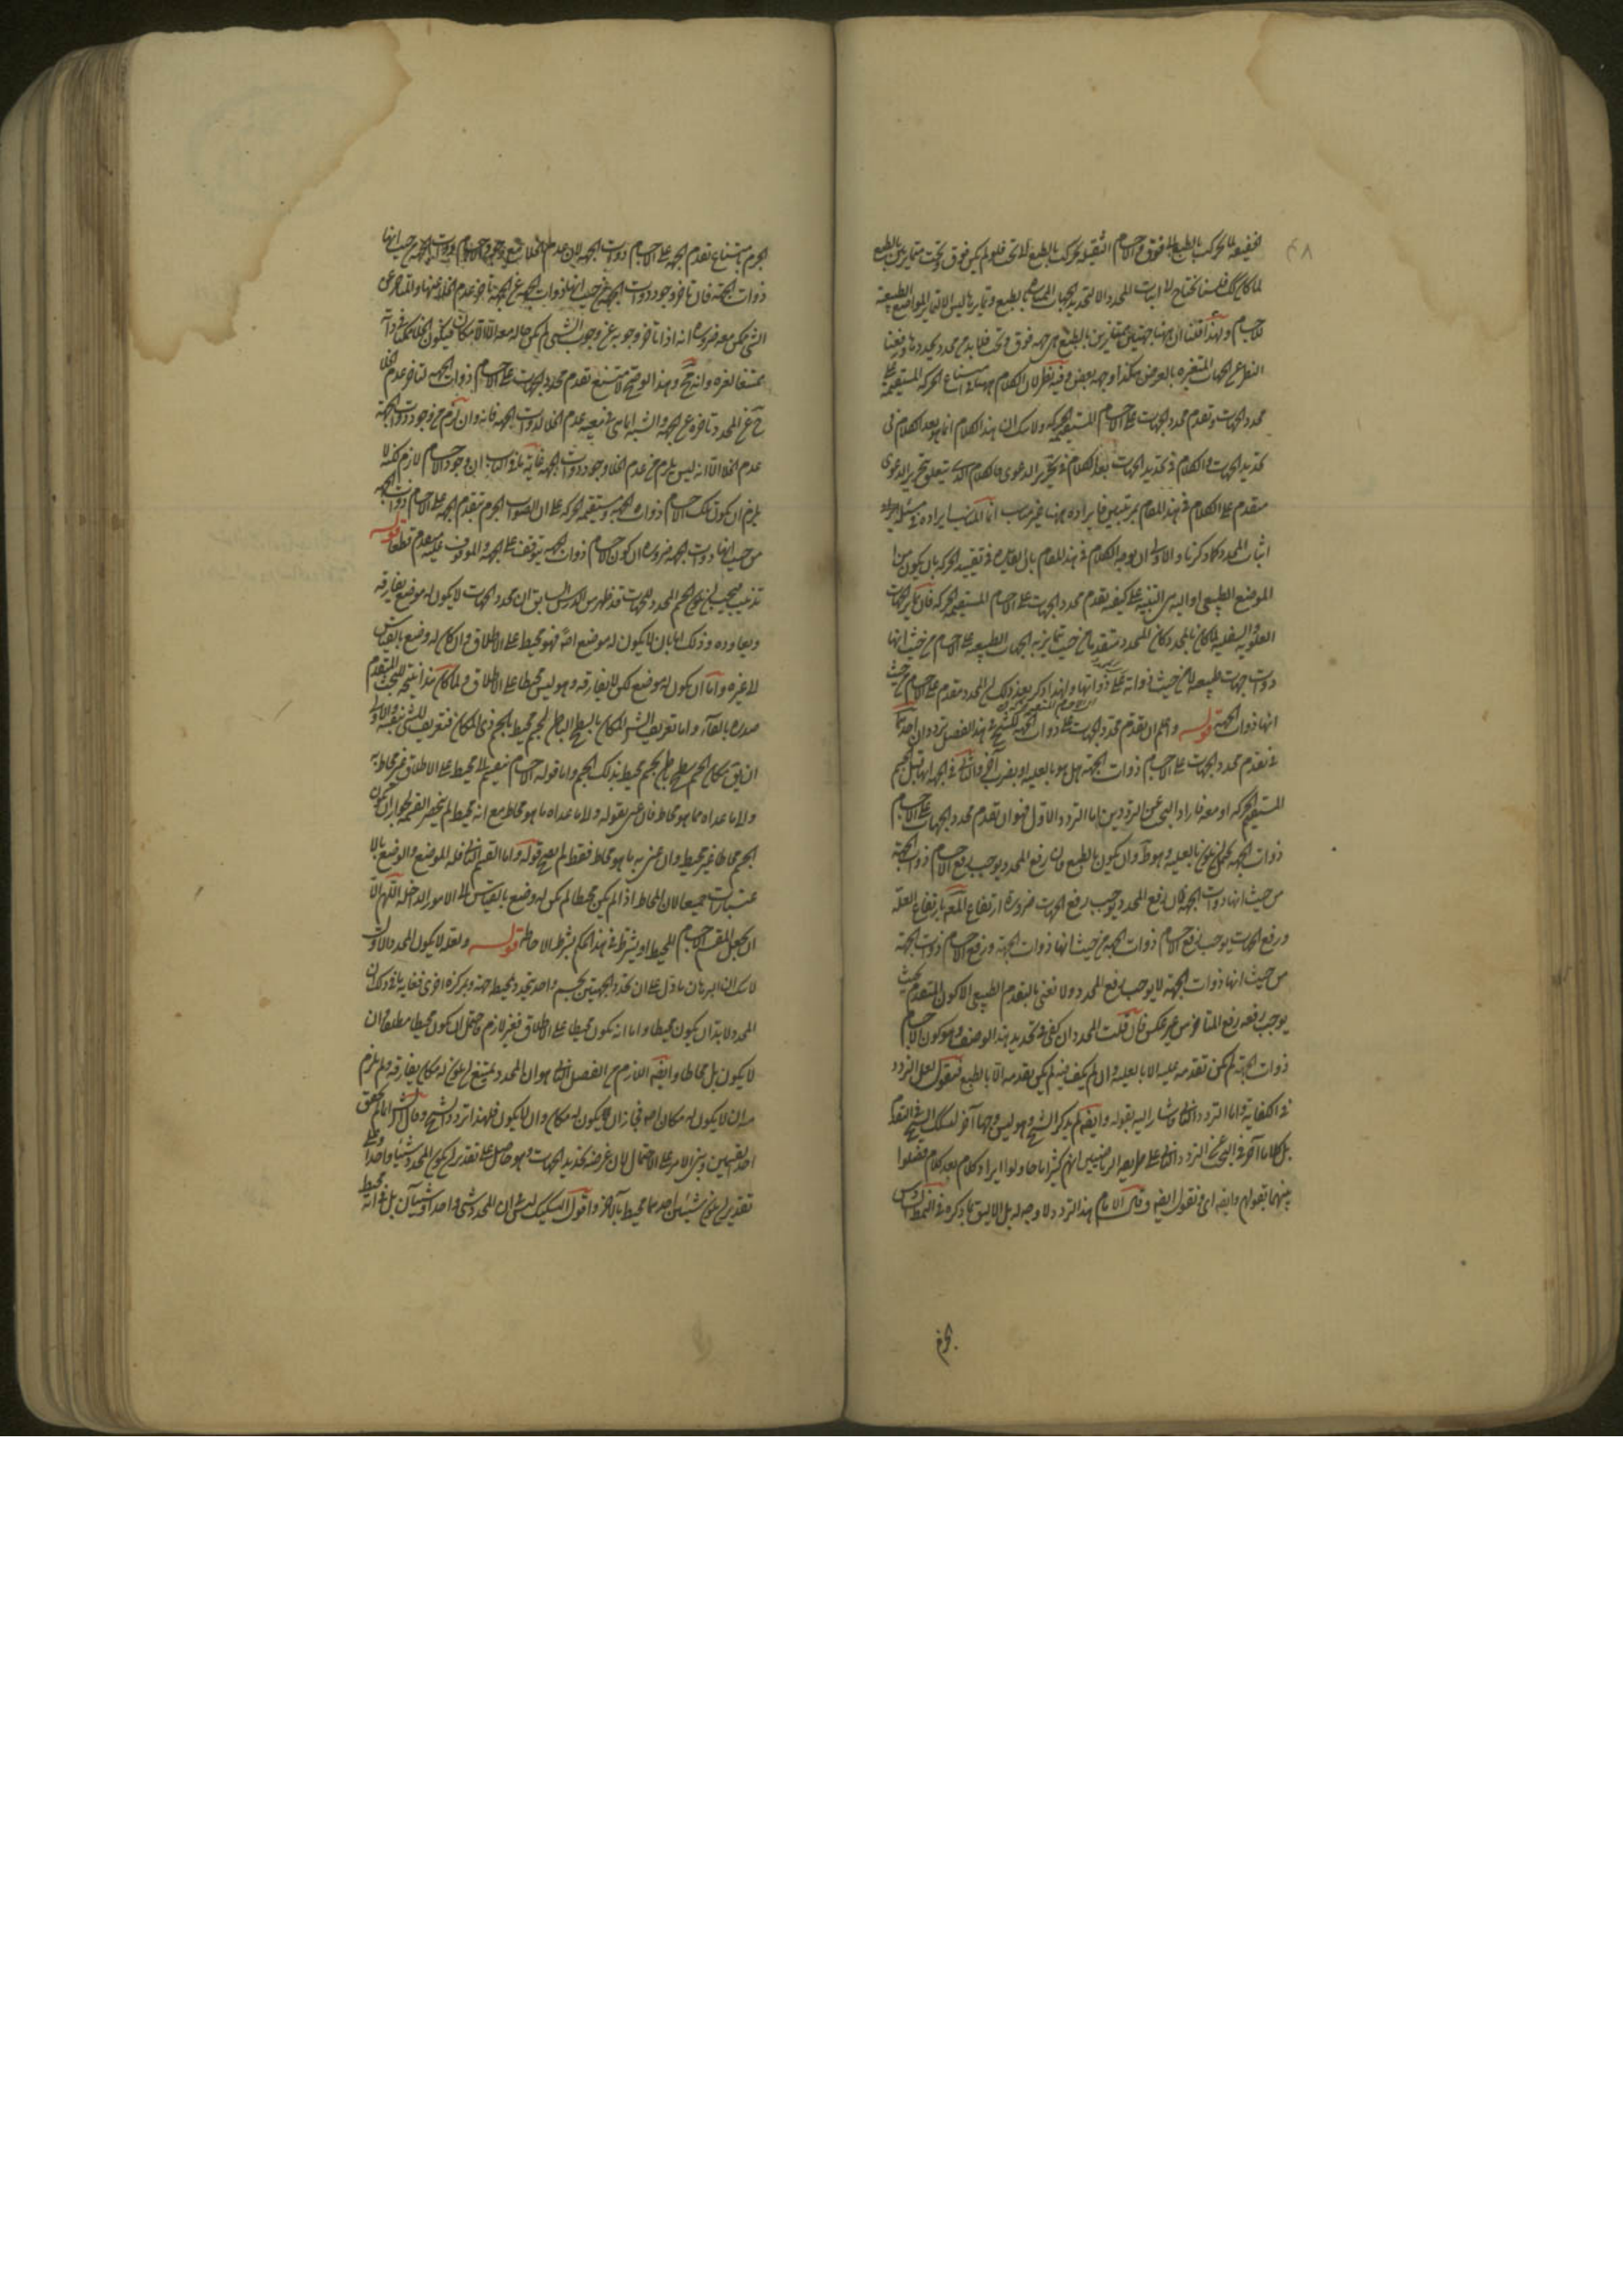 ٤٨
الخفيفة لا تحركت بالطبع الى فوق والاجسام الثقيلة تحركت بالطبع الى تحت فلو لم يكن فوق وتحت متمايزين بالطبع
لما كان كذلك فلسنا نحتاج الى اثبات المحدد الا لتحديد الجهات المتمايزة بالطبع وتمايزها ليس الا لتمايز المواضع الطبيعية
للاجسام ولهذا قلنا ان ههنا جهتين متمايزتين بالطبع هي جهة فوق وتحت فلا بد من محدد يحددها ورفعنا
النظر عن الجهات المتغيرة بالعرض هكذا وجهه بعض وفيه نظر لان الكلام ههنا في امتناع الحركة المستقيمة على
محدد الجهات وتقدم محدد الجهات على الاجسام المستقيمة الحركة ولا شك ان هذا الكلام انما هو بعد الكلام في
تحديد الجهات والكلام في تحديد الجهات بعد الكلام في تحرير الدعوى فالكلام الذي يتعلق بتحرير الدعوى
متقدم على الكلام في هذا المقام بمرتبتين فايراده ههنا غير مناسب انما المناسب ايراده في مسئلة
اثبات المحدد كما ذكرنا والاولى ان يوجه الكلام في هذا المقام بان الفائدة في تقييد الحركة بان يكون من
الموضع الطبيعي او اليه هي التنبيه على كيفية تقدم محدد الجهات على الاجسام المستقيمة الحركة فان تمايز الجهات
العلوية والسفلية لما كان بالمحدد كان المحدد متقدما من حيث تمايز به الجهات الطبيعية على الاجسام من حيث انها
ذوات جهات طبيعية لا من حيث ذواته على ذواتها ولهذا ذكر بعد ذلك ان المحدد متقدم على الاجسام من حيث
انها ذوات الجهة قوله واعلم ان تقدم محدد الجهات على ذوات الجهة للشيخ في هذا الفصل ترددان احدهما
في تقدم محدد الجهات على الاجسام ذوات الجهة هل هو بالعلية او بضرب آخر والثاني في الجهة انها قبل الجسم
المستقيم الحركة او معه فاراد البحث عن الترددين اما التردد الاول فهو ان تقدم محدد الجهات على الاجسام
ذوات الجهة يحتمل ان يكون بالعلية وهو ظ وان يكون بالطبع فان رفع المحدد يوجب رفع الاجسام ذوات الجهة
من حيث انها ذوات الجهة فان رفع المحدد يوجب رفع الجهات ضرورة ارتفاع المعلول بارتفاع العلة
ورفع الجهات يوجب رفع الاجسام ذوات الجهة من حيث انها ذوات الجهة ورفع الاجسام ذوات الجهة
من حيث انها ذوات الجهة لا يوجب رفع المحدد ولا نعنى بالتقدم الطبيعي الا كون المتقدم بحيث
يوجب رفعه رفع المتاخر من غير عكس فان قلت المحدد ان كفى في تحديد هذا الوصف وهو كون الاجسام
ذوات الجهة لم يكن تقدمه عليه الا بالعلية وان لم يكف فيه لم يكن تقدمه الا بالطبع فنقول لعل التردد
في الكفاية واما التردد الثاني فاشار اليه بقوله وايضا لم يذكر الشيخ وهو ليس وجها آخر لتشكك الشيخ في التقدم
بل كلاما آخر في البحث عن التردد الثاني على طريقة الرياضيين انهم كثيرا ما حاولوا ايراد كلام بعد كلام فصلوا
بينهما بقولهم وايضا اى ونقول ايضا وقال الامام هذا التردد لا وجه له بل الاليق بما ذكره في النمط السادس
الجرم
الجرم بامتناع تقدم الجهة على الاجسام ذوات الجهة لان عدم الخلاء مع وجود الاجسام ذوات الجهة من حيث انها
ذوات الجهة فان تاخر وجود ذوات الجهة من حيث انها ذوات الجهة عن الجهة تاخر عدم الخلاء عنها والمتاخر عن
الشئ ممكن معه ضرورة انه اذا تاخر وجوبه عن وجوب الشئ لم يكن حاله معه الا الامكان فيكون الخلاء ممكنا في ذاته
ممتنعا لغيره وانه مح وهذا لو صح لامتنع تقدم محدد الجهات على الاجسام ذوات الجهة لتاخر عدم الخلاء
ح عن المحدد وتاخره عن الجهة والشبهة انما هي في معية عدم الخلاء لذوات الجهة فانه وان لزم من وجود ذوات الجهة
عدم الخلاء الا انه ليس يلزم من عدم الخلاء وجود ذوات الجهة غاية ما في الباب ان وجود الاجسام لازم لكنه لا
يلزم ان يكون تلك الاجسام ذوات الجهة ومستقيمة الحركة على ان الصواب الجزم بتقدم الجهة على الاجسام ذوات الجهة
من حيث انها ذوات الجهة ضرورة ان كون الاجسام ذوات الجهة يتوقف على الجهة والموقوف عليه مقدم قطعا قوله
تذنيب فيجب ان يكون الجسم المحدد للجهات قد ظهر من الدرس السابق ان محدد الجهات لا يكون له موضع يفارقه
ويعاوده وذلك اما بان لا يكون له موضع اصلا فهو محيط على الاطلاق وان كان له وضع بالقياس
الى غيره واما ان يكون له موضع لكن لا يفارقه وهو ليس محيطا على الاطلاق ولما كان هذا نتيجة للبحث المتقدم
صدره بالفاء واما تعريف الشيخ المكان بالسطح الباطن للجسم المحيط بالجسم ذى المكان فتعريف للشئ بنفسه والاولى
ان يق مكان الجسم سطح باطن لجسم محيط بذلك الجسم واما قوله الاجسام تنقسم الى محيط على الاطلاق غير محاط به
والى ما عداه مما هو محاط فان عنى بقوله والى ما عداه ما هو محاط مع انه محيط لم ينحصر القسمة لجواز ان يكون
الجسم محاطا غير محيط وان عنى به ما هو محاط فقط لم يصح قوله واما القسم الثاني فله الموضع والوضع بالا
عتبارات جميعا لان المحاط اذا لم يكن محيطا لم يكن له وضع بالقياس الى الامور الداخلة اللهم الا
ان يجعل المنقسم الاجسام المحيطة او يشترط في هذا الحكم بشرط الاحاطة قوله ولعله لا يكون المحدد الا الاول
لا شك ان البرهان ما دل على ان تحدد الجهتين بجسم واحد يتحدد بمحيطه جهة وبمركزه اخرى فغاية ما في ذلك ان
المحدد لا بد ان يكون محيطا واما انه يكون محيطا على الاطلاق فغير لازم فاحتمل ان يكون محيطا مطلقا وان
لا يكون بل محاطا وايضا اللازم من الفصل الثاني هو ان المحدد يمتنع ان يكون له مكان يفارقه ولم يلزم
منه ان لا يكون له مكان اصلا فجاز ان يكون له مكان وان لا يكون فلهذا تردد الشيخ وقال الش لما لم يتحقق
احد القسمين وبنى الامر على الاحتمال لان غرضه تحديد الجهات وهو حاصل على تقدير ان يكون المحدد شيئا واحدا وعلى
تقدير ان يكون شيئين احدهما محيط بالآخر واقول التشكيك ليس في ان المحدد شئ واحد او شيئان بل في انه محيط